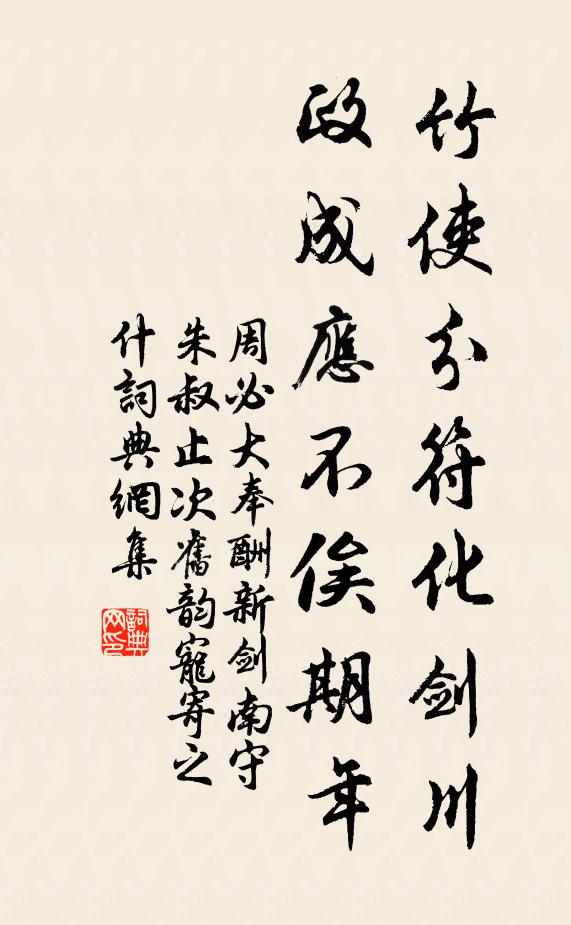 竹使分符化剑川
政成應不俟期年
周必大奉酬新剑南守
朱叔止次舊韵寵寄之
什詞典網集
詞典网印